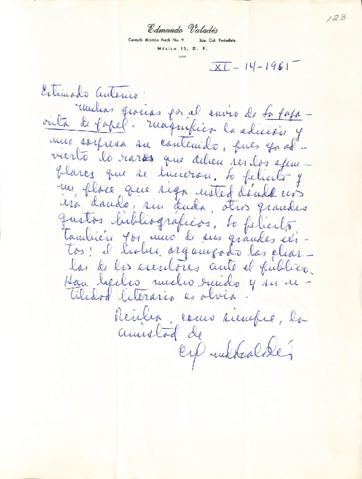 123
Edmundo Valadés
México 13, D. F.
XI - 14 - 1965
Estimado Antonio:
Muchas gracias por el envío de La
de papel. Magnífica la edición y
muy sorpresa su contenido, pues ya ad-
vierto lo raros que deben ser los ejem-
plares que se hicieron. Lo felicito y
me place que siga usted dándonos
dando, sin duda, otros grandes
gustos bibliográficos. Lo felicito
también por uno de sus grandes éxi-
tos: el haber organizado las char-
las de los escritores ante el público.
Han hecho mucho ruido y su u-
tilidad literaria es obvia.
Reciba, como siempre, la
amistad de
Edmundo Valadés